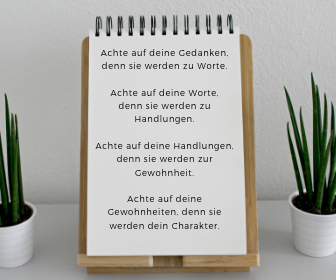 Achte auf deine Gedanken,
denn sie werden zu Worte.
Achte auf deine Worte,
denn sie werden zu
Handlungen.
Achte auf deine Handlungen,
denn sie werden zur
Gewohnheit.
Achte auf deine
Gewohnheiten, denn sie
werden dein Charakter.